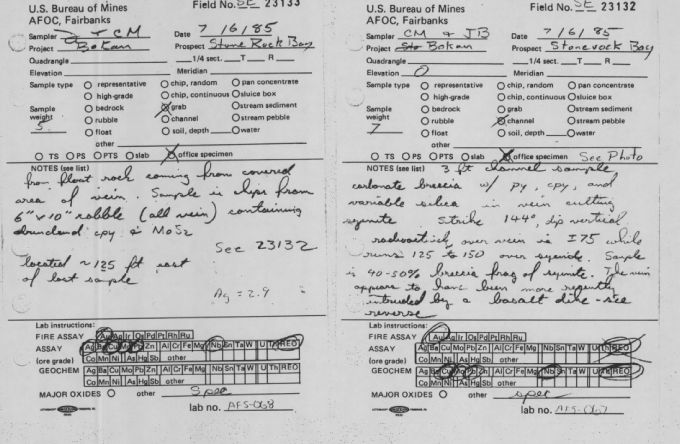 U.S. Bureau of Mines
AFOC, Fairbanks
Field No. SE 23133
Sampler & CM
Date 7/6/85
Project Bokan
Prospect Stone Rock Bay
Quadrangle
1/4 sect. T R
Elevation
Meridian
Sample type
representative
chip, random
pan concentrate
high-grade
chip, continuous
sluice box
Sample weight 5
bedrock
grab
stream sediment
rubble
channel
stream pebble
float
soil, depth
water
other
TS PS PTS slab office specimen
NOTES (see list)
from float rock coming from covered
area of vein. Sample is chips from
6" x 10" rubble (all vein) containing
abundant cpy & MoS2
See 23132
located ~125 ft east
of last sample
Ag = 2.9
Lab instructions:
FIRE ASSAY Au Ag Ir Os Pd Pt Rh Ru
ASSAY Ag Ba Cu Mo Pb Zn Al Cr Fe Mg Nb Sn Ta W U Th REO
(ore grade) Co Mn Ni As Hg Sb other
GEOCHEM Ag Ba Cu Mo Pb Zn Al Cr Fe Mg Nb Sn Ta W U Th REO
Co Mn Ni As Hg Sb other
MAJOR OXIDES other Spec
lab no. AFS-068
U.S. Bureau of Mines
AFOC, Fairbanks
Field No. SE 23132
Sampler CM & JB
Date 7/6/85
Project Bokan
Prospect Stonerock Bay
Quadrangle
1/4 sect. T R
Elevation 0
Meridian
Sample type
representative
chip, random
pan concentrate
high-grade
chip, continuous
sluice box
Sample weight 7
bedrock
grab
stream sediment
rubble
channel
stream pebble
float
soil, depth
water
other
TS PS PTS slab office specimen See Photo
NOTES (see list) 3 ft channel sample
carbonate breccia w/ py, cpy, and
variable silica in vein cutting
syenite Strike 144°, dip vertical.
over vein is 175 while
runs 125 to 150 over syenite. Sample
is 40-50% breccia frag of syenite. The vein
appears to have been more recently
intruded by a basalt dike - see
reverse
Lab instructions:
FIRE ASSAY Au Ag Ir Os Pd Pt Rh Ru
ASSAY Ag Ba Cu Mo Pb Zn Al Cr Fe Mg Nb Sn Ta W U Th REO
(ore grade) Co Mn Ni As Hg Sb other
GEOCHEM Ag Ba Cu Mo Pb Zn Al Cr Fe Mg Nb Sn Ta W U Th REO
Co Mn Ni As Hg Sb other
MAJOR OXIDES other spec
lab no. AFS-067